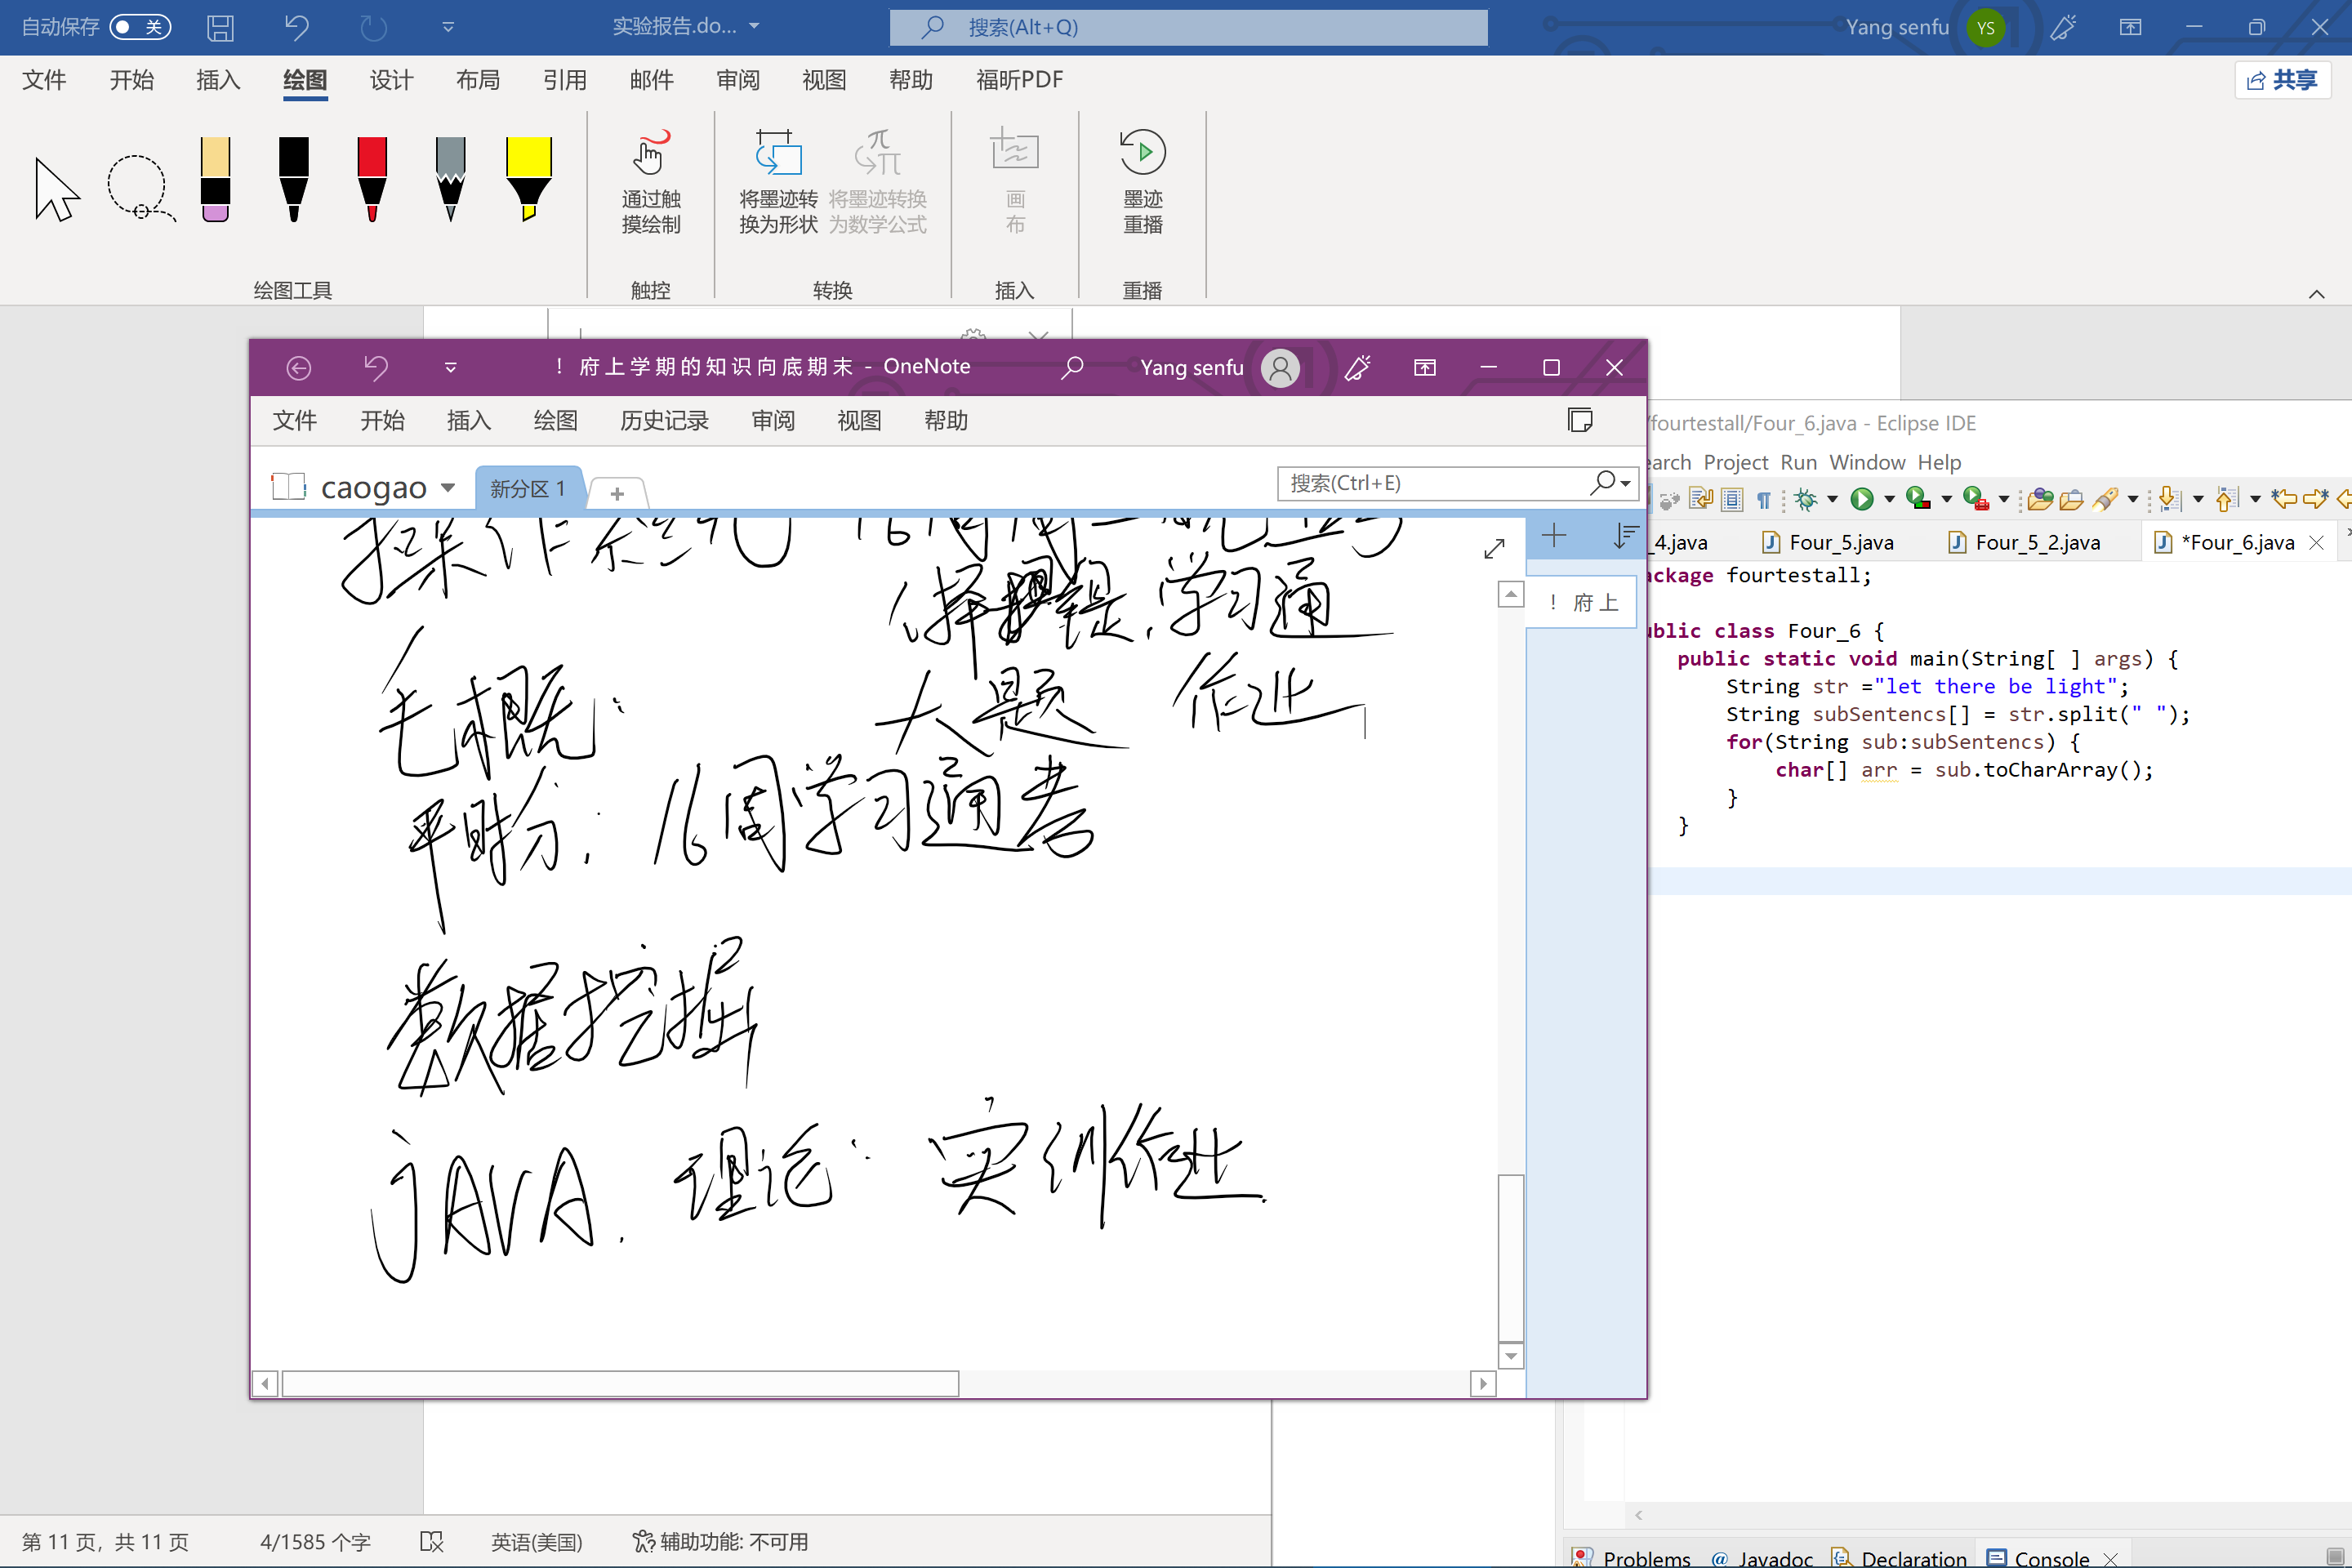 自动保存 关 实验报告.do... 搜索(Alt+Q) Yang senfu YS
文件 开始 插入 绘图 设计 布局 引用 邮件 审阅 视图 帮助 福昕PDF 共享
通过触摸绘制 将墨迹转换为形状 将墨迹转换为数学公式 画布 墨迹重播
绘图工具 触控 转换 插入 重播
! 府上学期的知识向底期末 - OneNote Yang senfu
文件 开始 插入 绘图 历史记录 审阅 视图 帮助
caogao 新分区 1 搜索(Ctrl+E)
! 府上
操作系统 16周周一
学习通
毛概: 大题 作业
平时分: 16周学习通考
数据挖掘
JAVA. 理论: 实训作业.
/fourtestall/Four_6.java - Eclipse IDE
earch Project Run Window Help
_4.java Four_5.java Four_5_2.java *Four_6.java
ackage fourtestall;
ublic class Four_6 {
public static void main(String[ ] args) {
String str ="let there be light";
String subSentencs[] = str.split(" ");
for(String sub:subSentencs) {
char[] arr = sub.toCharArray();
}
}
Problems @ Javadoc Declaration Console
第 11 页，共 11 页 4/1585 个字 英语(美国) 辅助功能: 不可用